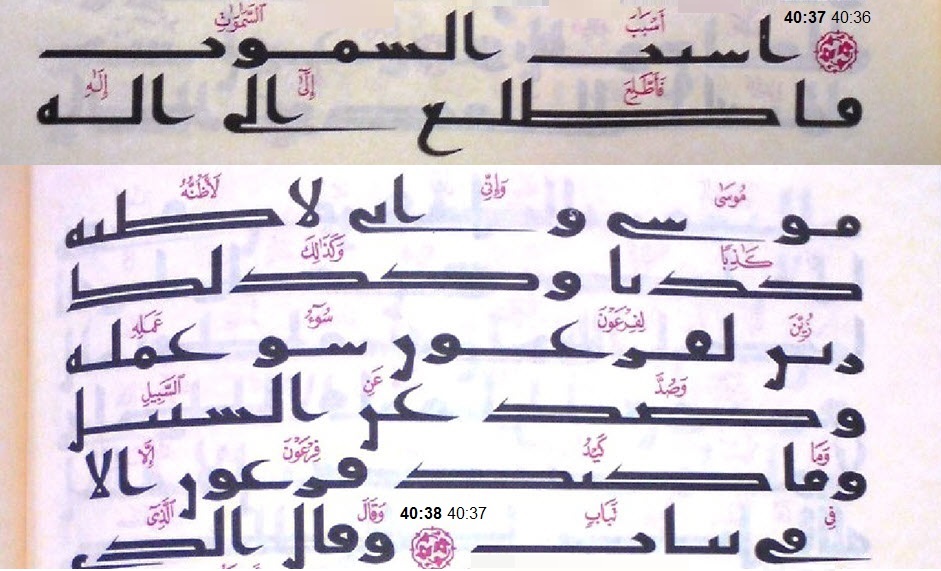 40:37 40:36 أَسْبَٰبَ ٱلسَّمَٰوَٰتِ
اسبب السموت
فَأَطَّلِعَ إِلَىٰٓ إِلَٰهِ
فاطلع الى اله
مُوسَىٰ وَإِنِّى لَأَظُنُّهُ
موسى وانى لاظنه
كَٰذِبًا وَكَذَٰلِكَ
كذبا وكذلك
زُيِّنَ لِفِرْعَوْنَ سُوٓءُ عَمَلِهِ
زين لفرعون سو عمله
وَصُدَّ عَنِ ٱلسَّبِيلِ
وصد عن السبيل
وَمَا كَيْدُ فِرْعَوْنَ إِلَّا
وما كيد فرعون الا
فِى تَبَابٍ 40:38 40:37 وَقَالَ ٱلَّذِىٓ
فى تباب وقال الذى